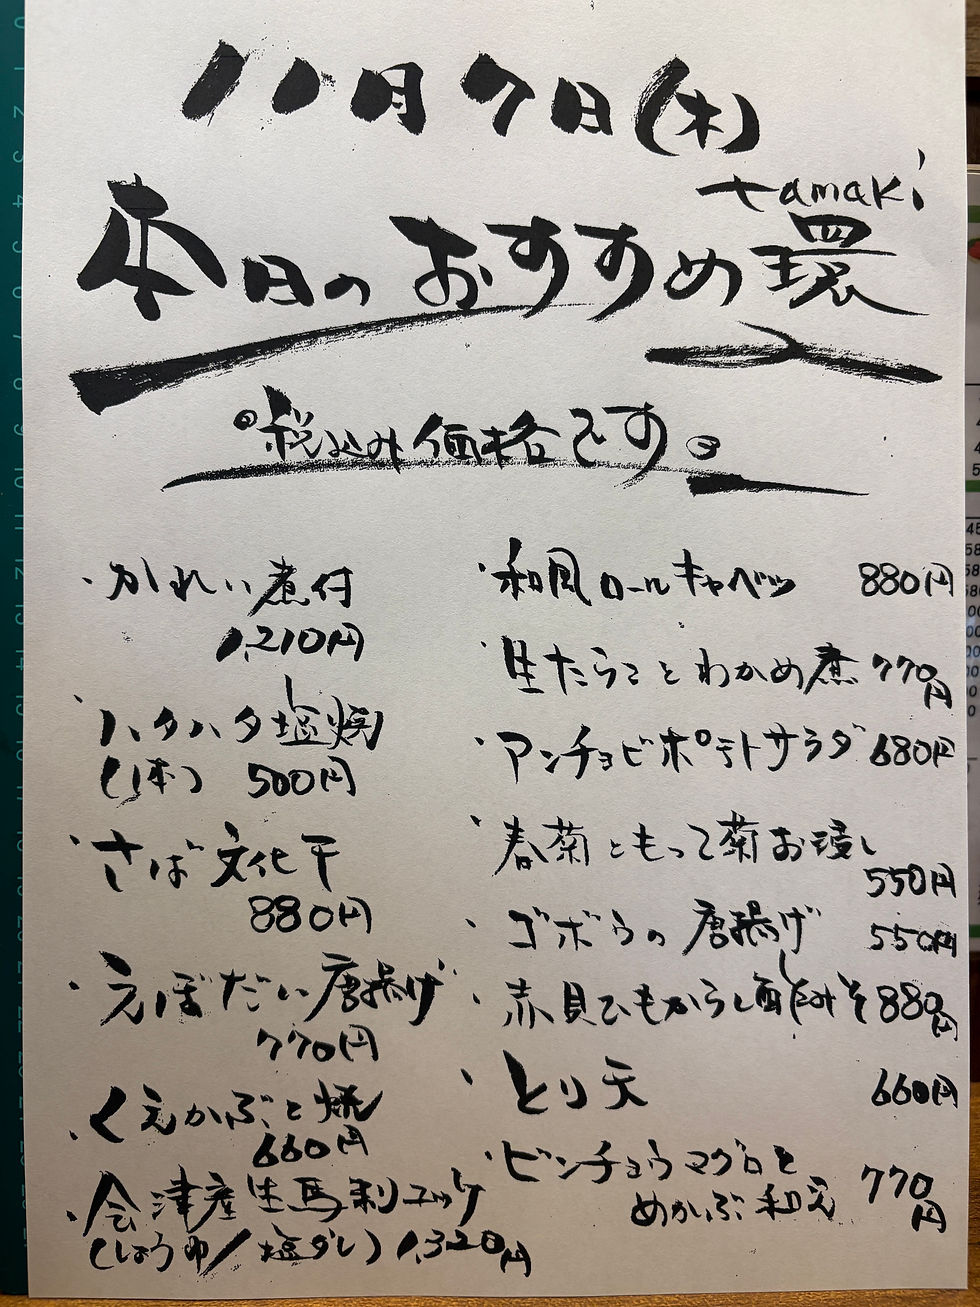 11月7日(木)
tamaki
本日のおすすめ環
税込み価格です。
・かれい煮付
1,210円
・ハタハタ塩焼
(1本) 500円
・さば文化干
880円
・えぼだい唐揚げ
770円
・くえかぶと焼
660円
・会津産生馬刺ユッケ
(しょうゆ/塩ダレ) 1,320円
・和風ロールキャベツ 880円
・生たらことわかめ煮 770円
・アンチョビポテトサラダ 680円
・春菊ともって菊お浸し
550円
・ゴボウの唐揚げ 550円
・赤貝ひもからし酢みそ 880円
・とり天 660円
・ビンチョウマグロと
めかぶ和え 770円